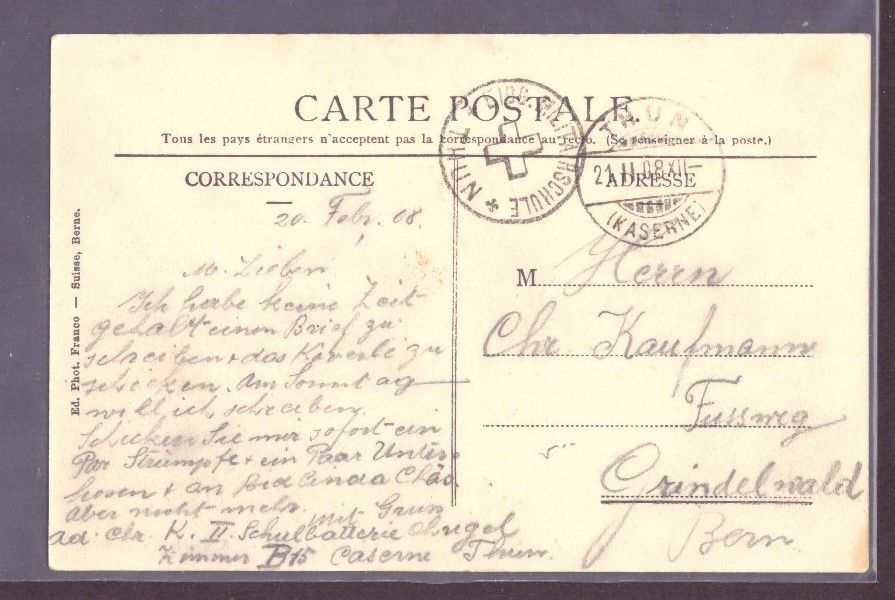 CARTE POSTALE.
Tous les pays étrangers n'acceptent pas la correspondance au recto. (Se renseigner à la poste.)
THUN * EIDG. MILITÄRSCHULE *
THUN
21.II.08.XII—
(KASERNE)
CORRESPONDANCE
ADRESSE
20. Febr. 08.
M. Lieben
Ich habe keine Zeit
gehabt einen Brief zu
schreiben + das zu
schicken. Am Sonntag
will ich schreiben.
Schicken Sie mir sofort ein
Par Strümpfe + ein Paar Unter-
hosen + an
aber nicht mehr. Mit Gruss
Chr. K. II. Schulbatterie
Zimmer B15 Caserne Thun.
M Herrn
Chr Kaufmann
Fussweg
Grindelwald
Bern
Ed. Phot. Franco — Suisse, Berne.